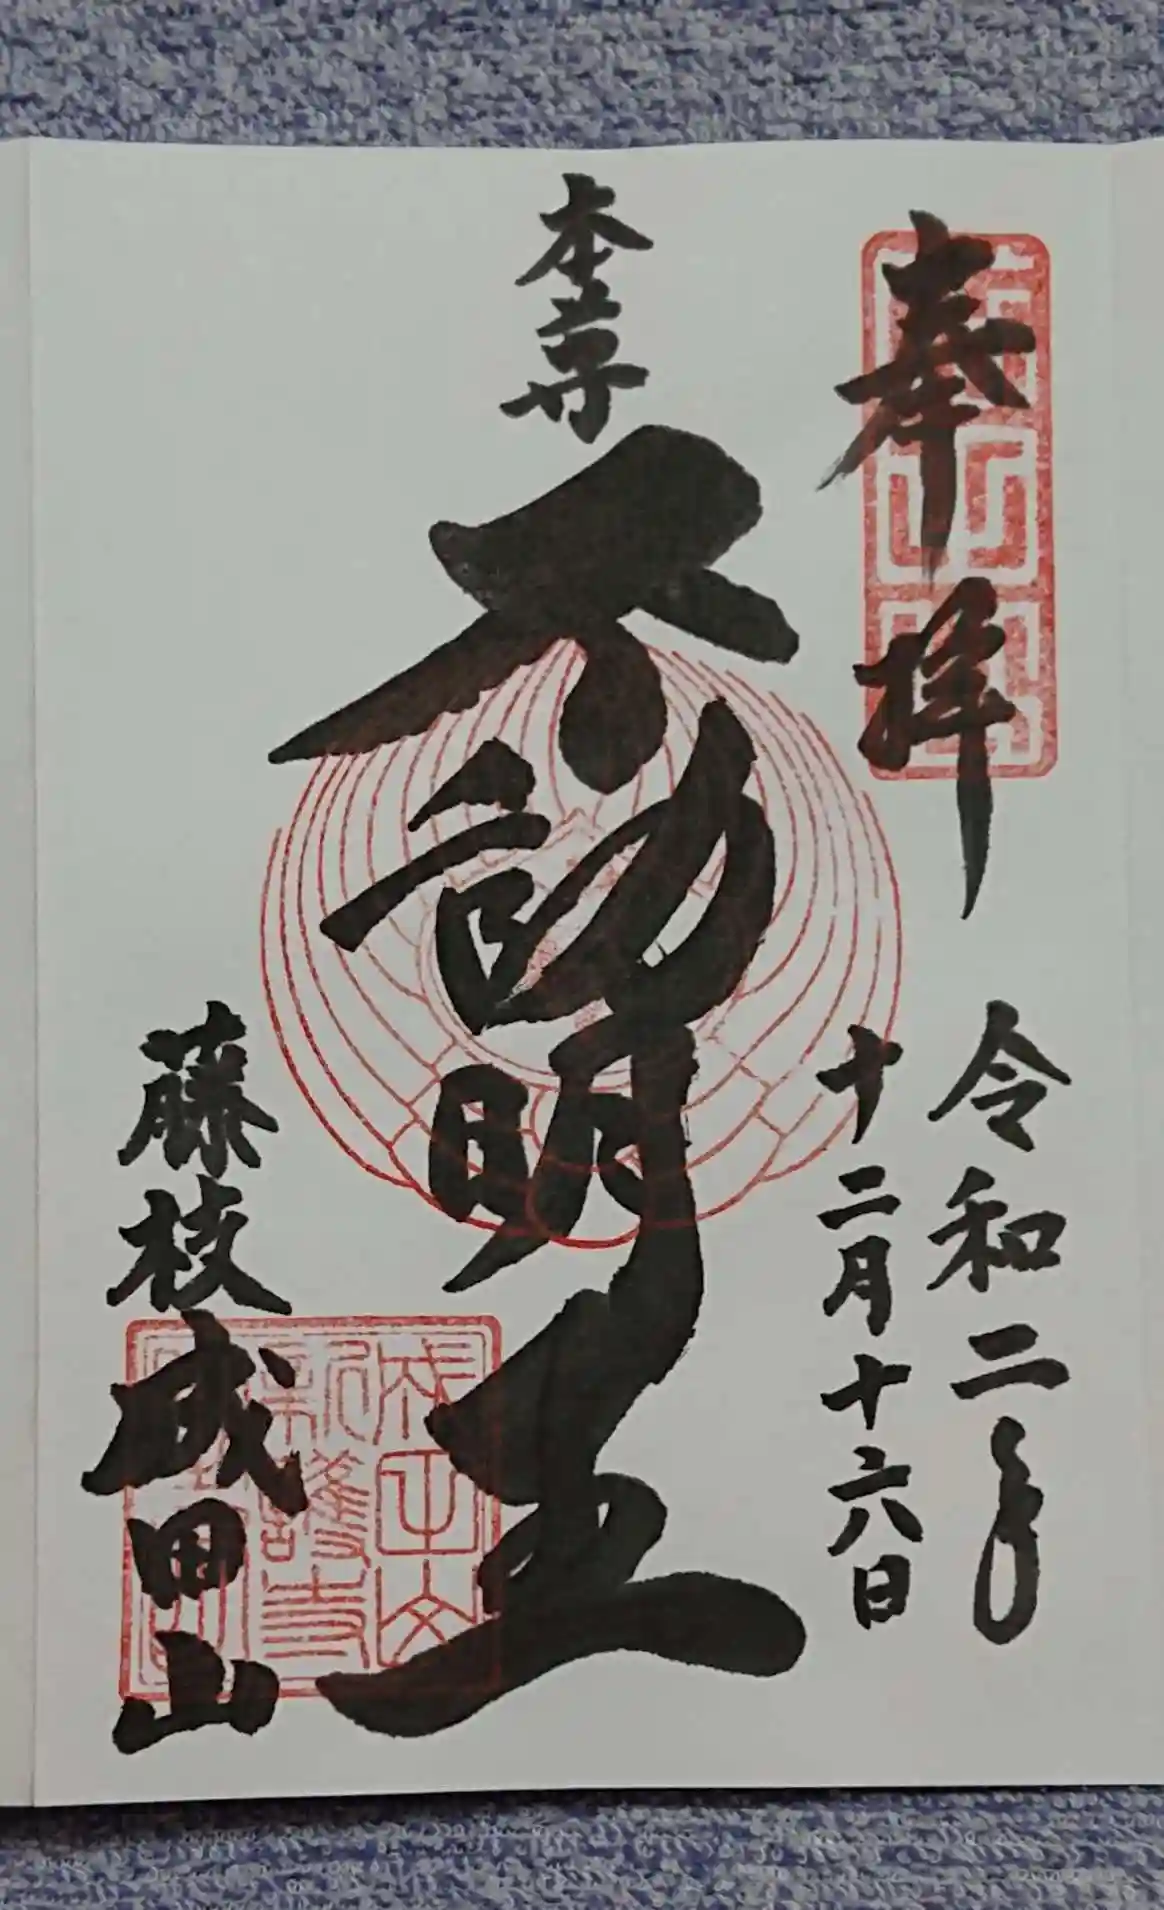 奉拝
令和二年
十二月十六日
本尊
不動明王
藤枝
成田山